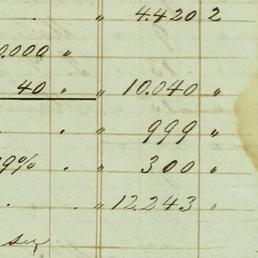 " 4.420 2
0.000 "
40 " " 10.040 "
. . " 999 "
9% . " 300 "
. . " 12.243 "